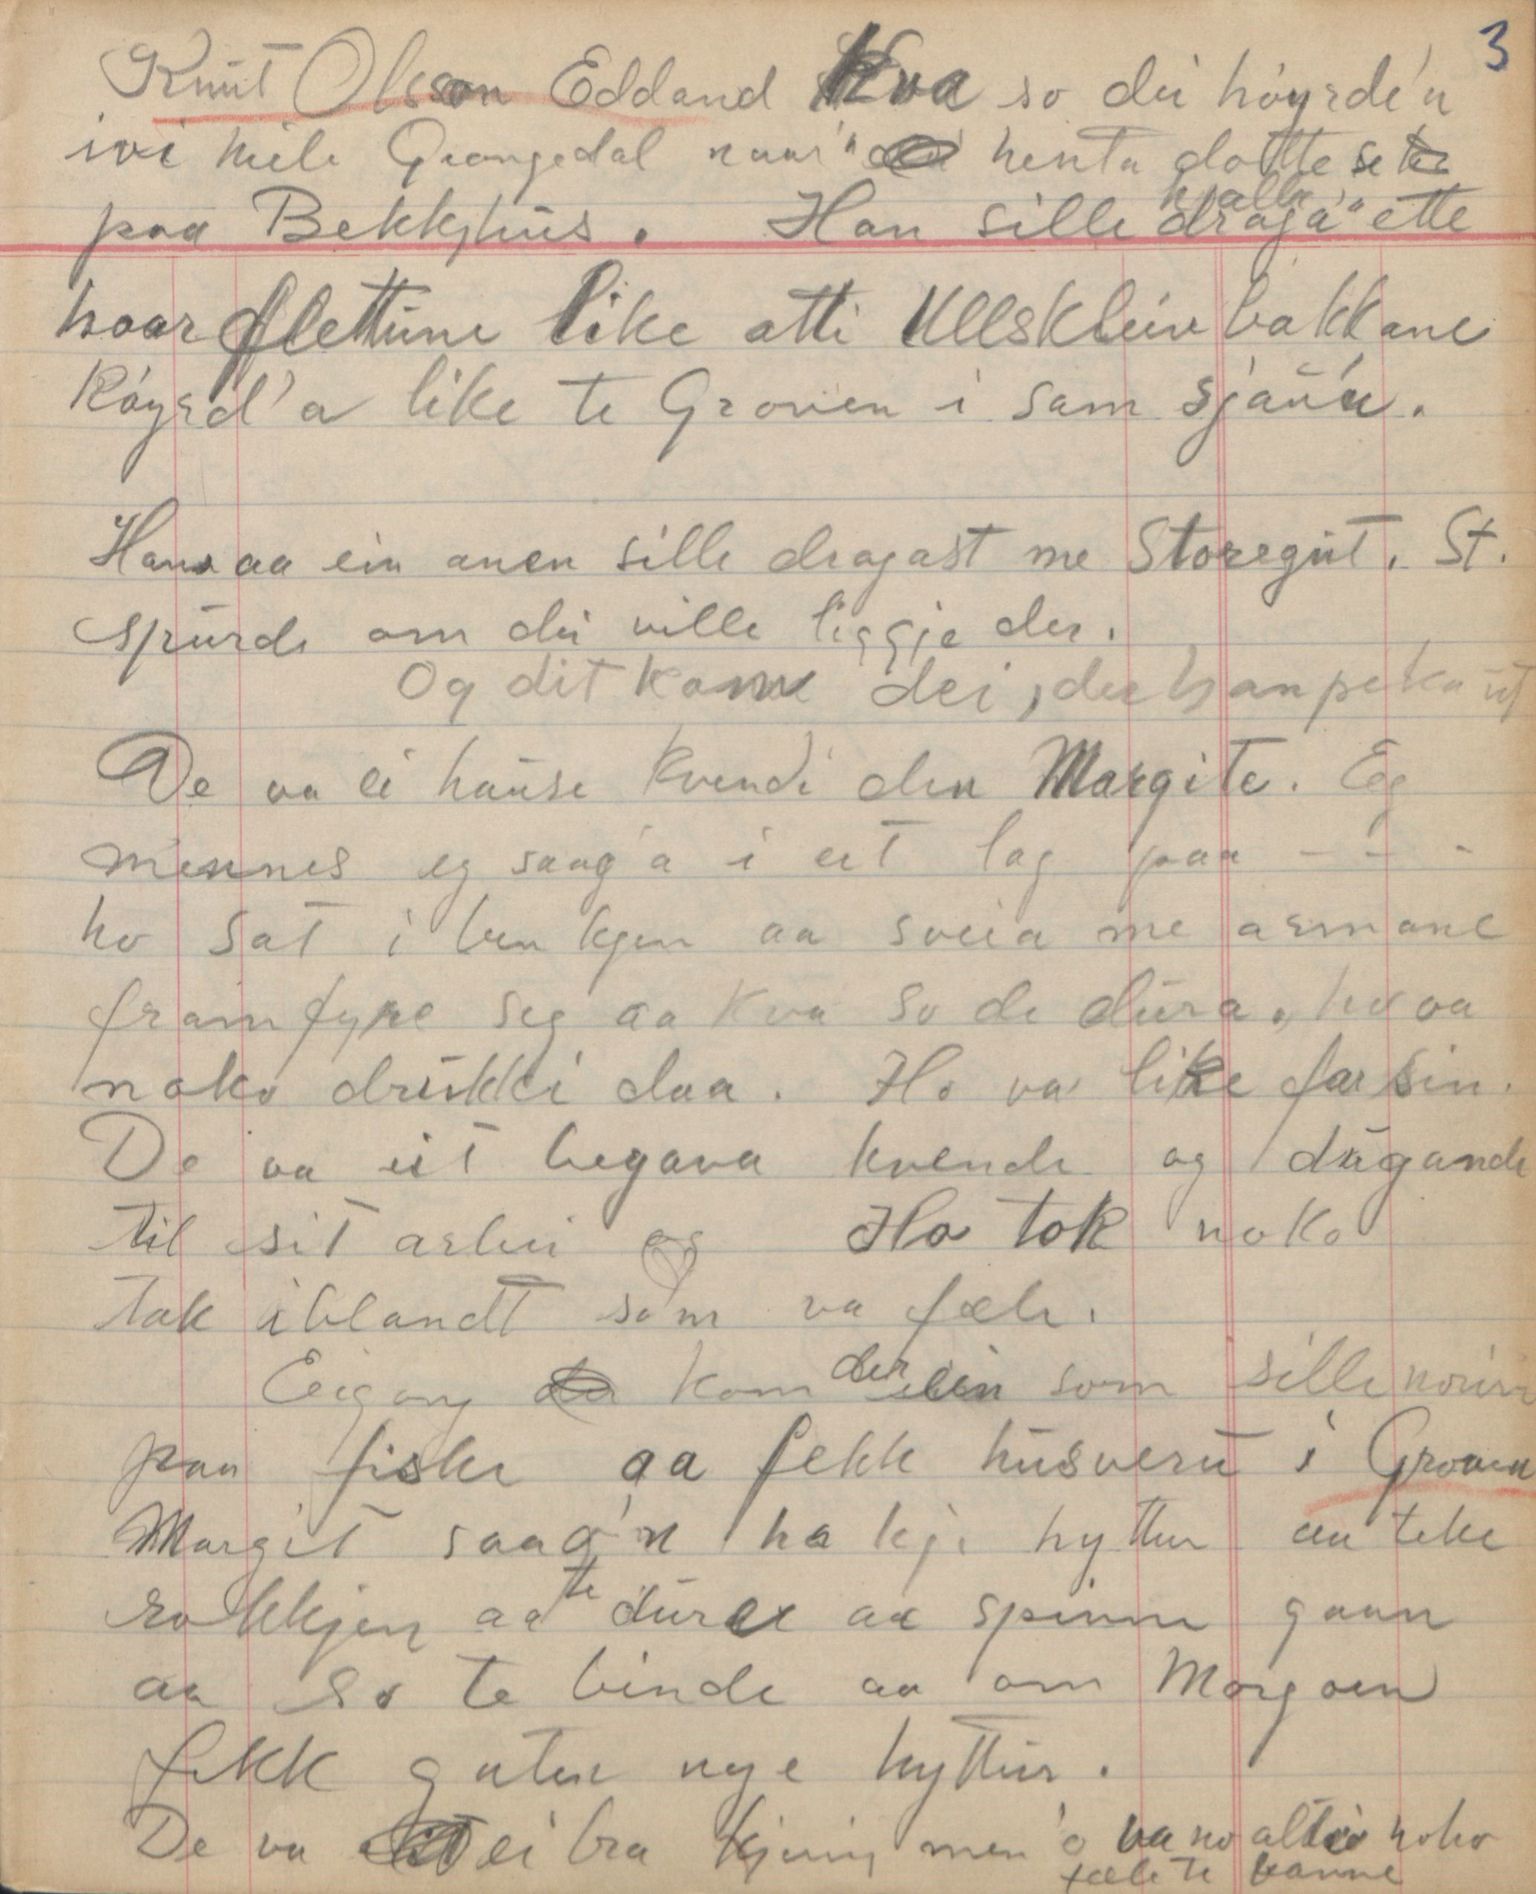 3
Knut Olsson Eddand Kva so dei höyrde'n
ivi heile Grongedal naar'n henta dotte se
paa Bekkhus. Han sille draga'a ette
kalla
haarflettune like atti Ullskleivbakkane
Köyrd'a like te Groven i sam sjau'u.
Han aa ein anen sille dragast me Storegut. St.
spurde om dei ville liggje der.
Og dit kom dei, der han peka ut
De va ei hause kvendi den Margite. Eg
minnes eg saag'a i eit lag paa - - -
ho sat i benkjen aa sveia me armane
framfyre seg aa kva so de dura, ho va
noko drukki daa. Ho va like far sin.
De va eit begava kvende og dugande
til sit arbei og Ho tok noko
tak iblandt som va fæle.
Eigong kom der ein som sille
paa fiske aa fekk husveru i Groven
Margit saag'n ha kje hyttur aa teke
rokkjen aa te dura aa spinne gaan
aa so te binde aa om Morgoen
fekk guten nye hyttur.
De va ei bra kjering men 'o va no alltio noko
fæle te banne